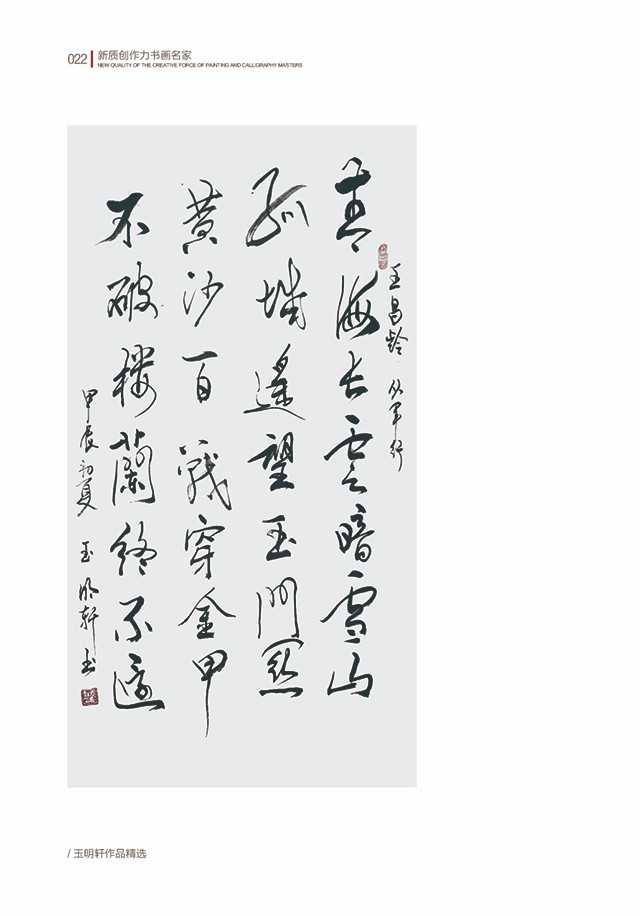 022
新质创作力书画名家
NEW QUALITY OF THE CREATIVE FORCE OF PAINTING AND CALLIGRAPHY MASTERS
王昌龄 从军行
青海长雲暗雪山
孤城遥望玉門關
黄沙百戰穿金甲
不破楼蘭終不還
甲辰初夏 玉明轩书
/ 玉明轩作品精选